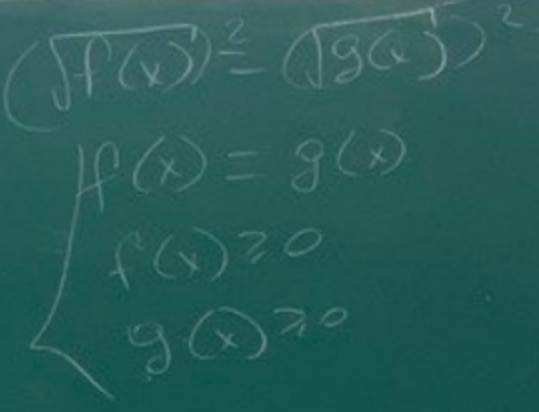 (√f(x))² = (√g(x))²
f(x) = g(x)
f(x) ⩾ 0
g(x) ⩾ 0